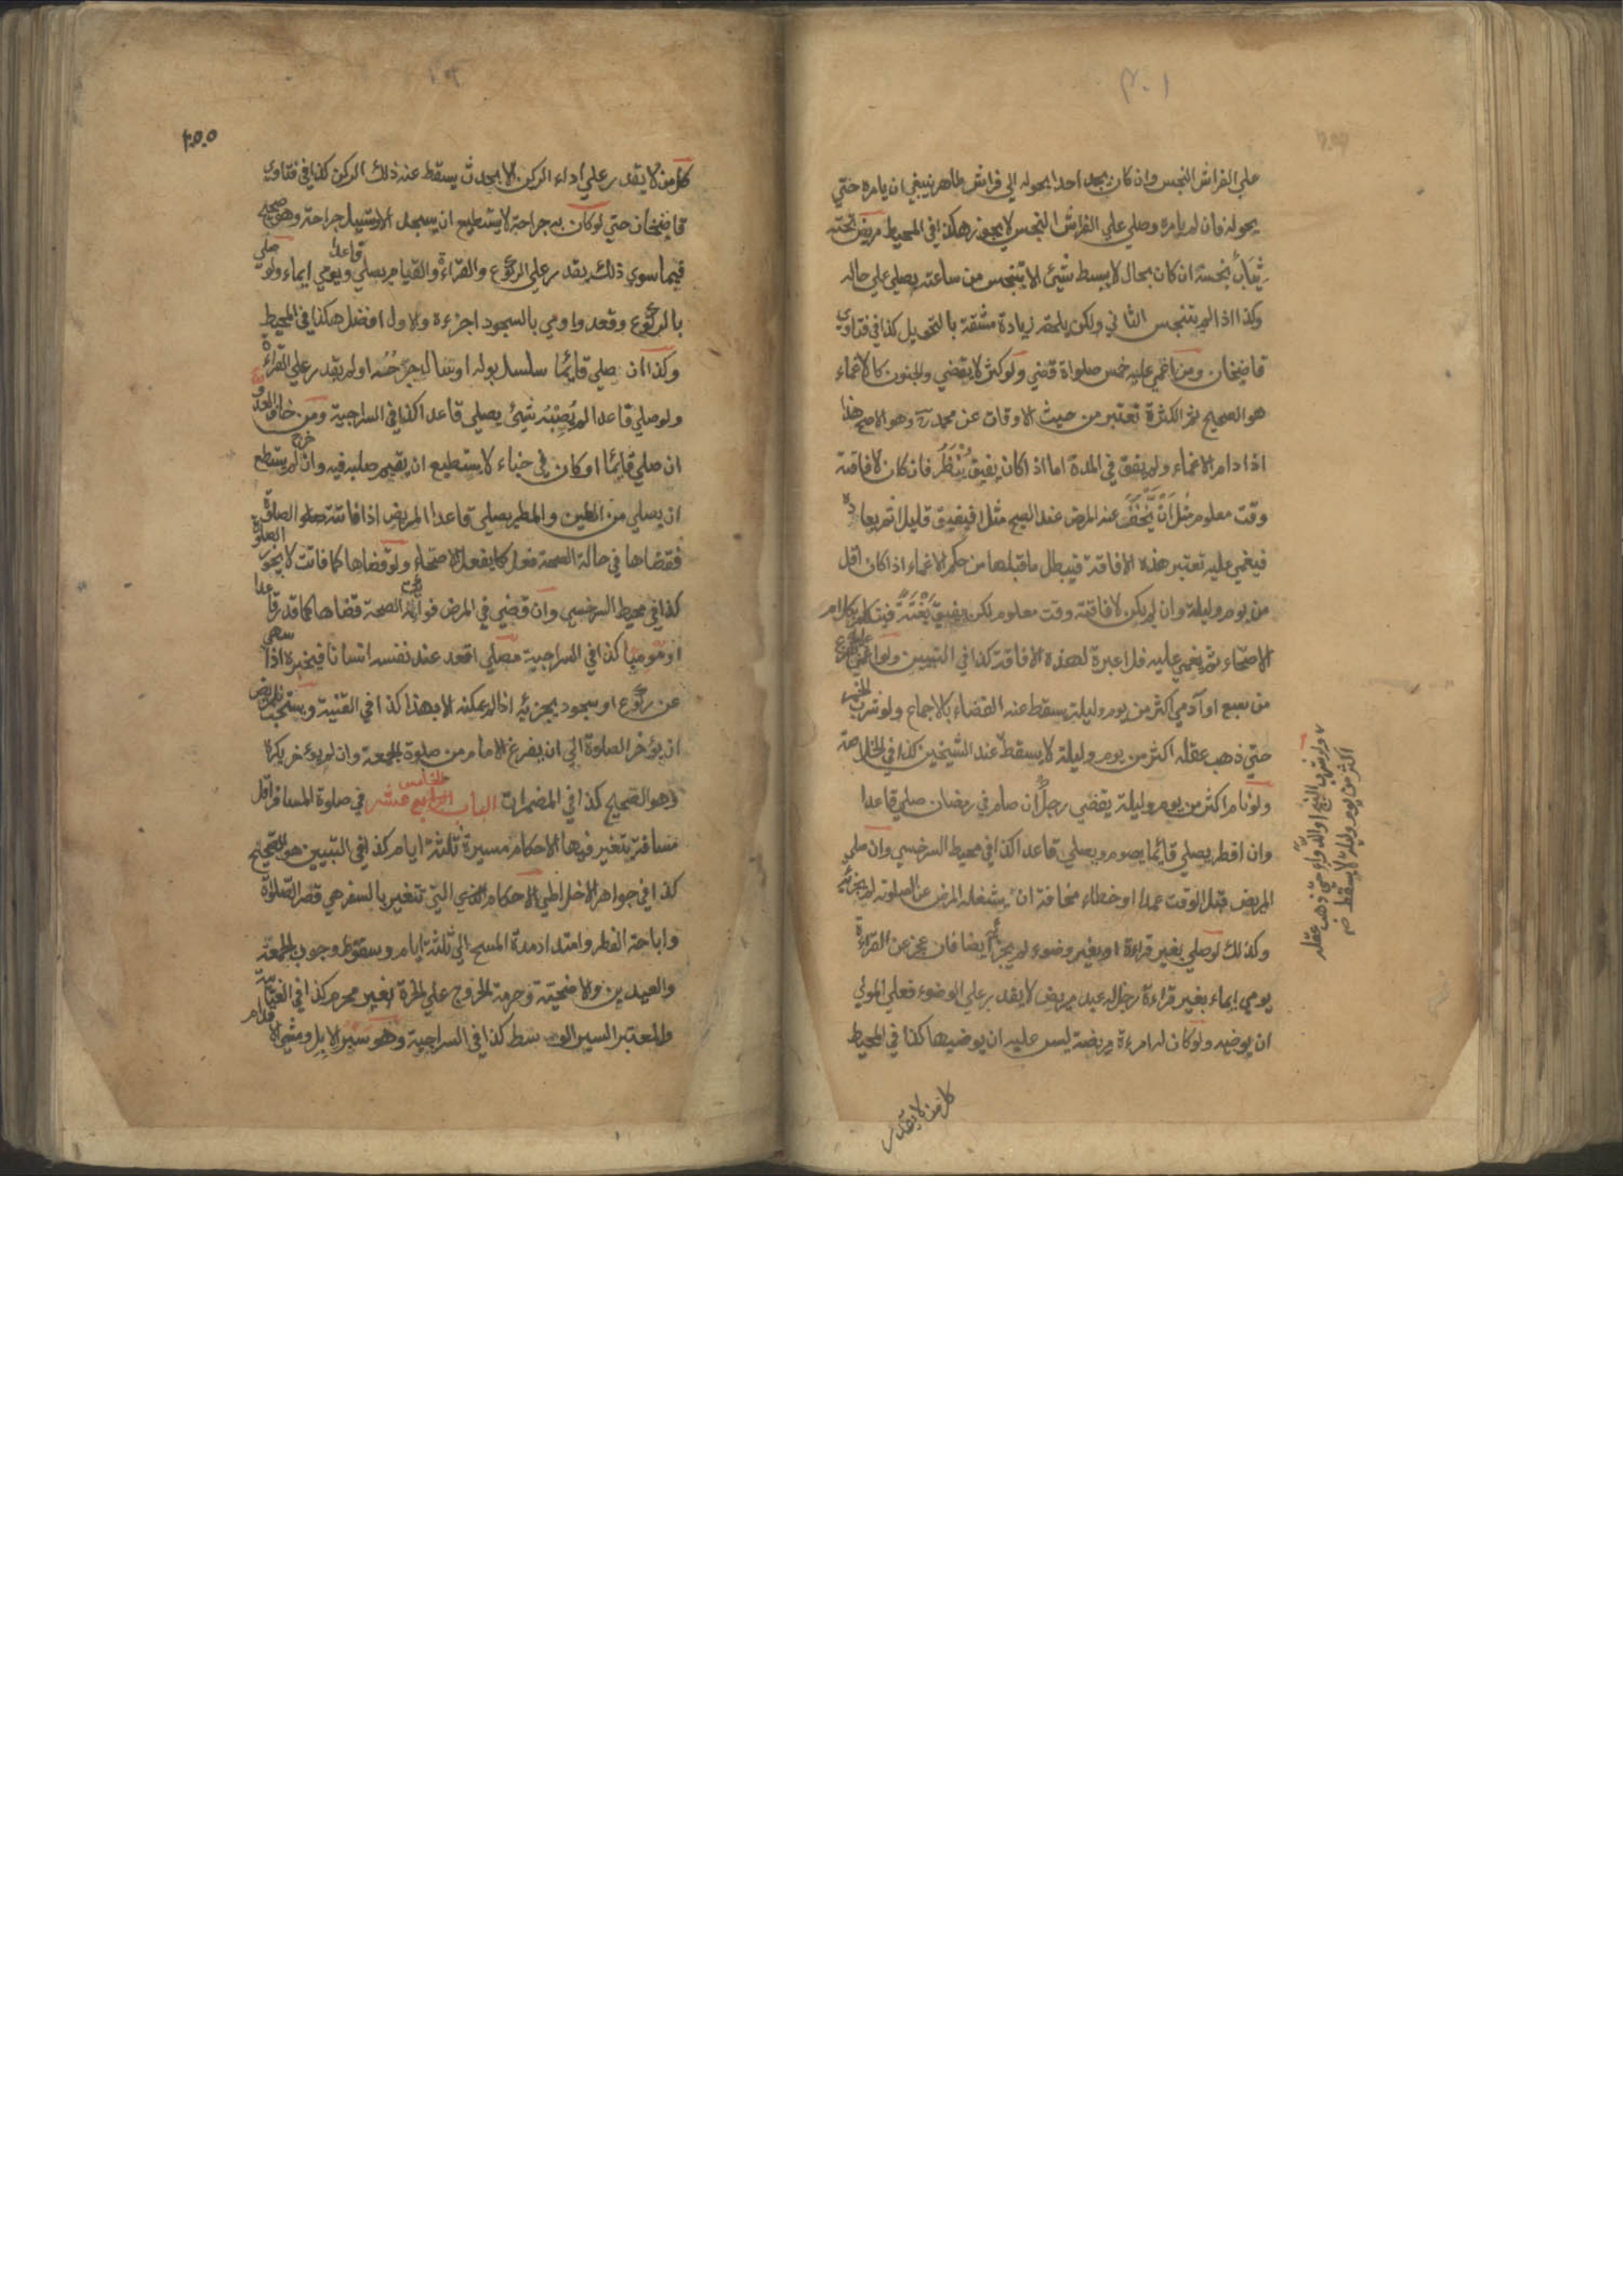 على الفراش النجس وان كان يجد احدا يحوله الي فراش طاهر ينبغي ان يامره حتي
يحوله فان لم يامره وصلي علي الفراش النجس لا يجوز هكذا في المحيط مريض تحته
ثياب نجسة ان كان بحال لا يبسط شيئ الا يتنجس من ساعته يصلي علي حاله
وكذا اذا لم يتنجس الثاني ولكن يلحقه زيادة مشقة بالتحويل كذا في فتاوي
قاضيخان ومن اغمي عليه خمس صلواة قضي ولو كثر لا يقضي والجنون كالاغماء
هو الصحيح ثم الكثرة تعتبر من حيث الاوقات عن محمد رح وهو الاصح هذا
اذا دام الاغماء ولم يفق في المدة اما اذا كان يفيق يُنْظَرُ فان كان لافاقته
وقت معلوم مثل اَنْ يَّخَفَّ عنه المرض عند الصبح مثلا فيفيق قليلا ثم يعاوده
فيغمي عليه تعتبر هذه الافاقة فيبطل ما قبلها من حكم الاغماء اذا كان اقل
من يوم وليلة وان لم يكن لافاقته وقت معلوم لكن يفيق بَغْتَةً فيتكلم بكلام
الاصحاء ثم يغمي عليه فلا عبرة لهذه الافاقة كذا في التبيين ولو اغمي عليه بفزع
من سبع او آدمي اكثر من يوم وليلة يسقط عنه القضاء بالاجماع ولو شرب الخمر
حتي ذهب عقله اكثر من يوم وليلة لا يسقط عند الشيخين كذا في الخلاصة
ولو نام اكثر من يوم وليلة يقضي رجل ان صام في رمضان صلي قاعدا
وان افطر يصلي قائما يصوم ويصلي قاعدا كذا في محيط السرخسي وان صلي
المريض قبل الوقت عمدا او خطاء مخافة ان يشغله المرض عن الصلوة لم يجزئه
وكذلك لو صلي بغير قراءة او بغير وضوء لم يجز ايضا فان عجز عن القراءة
يومي ايماء بغير قراءة رجل له عبد مريض لا يقدر علي الوضوء فعلي المولي
ان يوضيه ولو كان له امرءة مريضة ليس عليه ان يوضيها كذا في المحيط
كل من لا يقدر
ولو شرب البنج او الدواء حتي ذهب عقله
اكثر من يوم وليلة لا يسقط
كل من لا يقدر علي اداء الركن الا بحدث يسقط عنه ذلك الركن كذا في فتاوي
قاضيخان حتي لو كان به جراحة لا يستطيع ان يسجد الا وتسيل جراحته وهو صحيح
فيما سوي ذلك يقدر علي الركوع والقراءة والقيام يصلي قاعدا ويومي ايماء ولو صلي
بالركوع وقعد واومي بالسجود اجزءه والاول افضل هكذا في المحيط
وكذا ان صلي قائما سلسل بوله او سال جُرْحُه او لم يقدر علي القراءة
ولو صلي قاعدا لم يُصِبْهُ شيئ يصلي قاعدا كذا في السراجية ومن خاف العدو
ان صلي قائما او كان في خباء لا يستطيع ان يقيم صلبه فيه وان خرج لم يستطع
ان يصلي من الطين والمطر يصلي قاعدا المريض اذا فاتته الصلوة
فقضاها في حالة الصحة فعل كما يفعل الاصحاء ولو قضاها كما فاتت لا يجوز
كذا في محيط السرخسي وان قضي في المرض فوائت الصحة قضاها كما قدر قاعدا
او موميا كذا في السراجية مصلي اقعد عند نفسه انسانا فيخبره اذا سهي
عن ركوع او سجود يجزئه اذا لم يمكنه الا بهذا كذا في القنية ويستحب للمريض
ان يؤخر الصلوة الي ان يفرغ الامام من صلوة الجمعة وان لم يؤخر يكره
وهو الصحيح كذا في المضمرات الباب الخامس عشر في صلوة المسافر اقل
مسافة يتغير فيها الاحكام مسيرة ثلثة ايام كذا في التبيين هو الصحيح
كذا في جواهر الاخلاطي الاحكام التي تتغير بالسفر هي قصر الصلوة
واباحة الفطر وامتداد مدة المسح الي ثلثة ايام وسقوط وجوب الجمعة
والعيدين والاضحية وحرمة الخروج علي الحرة بغير محرم كذا في العتابية
والمعتبر السير الوسط كذا في السراجية وهو سير الابل ومشي الاقدام